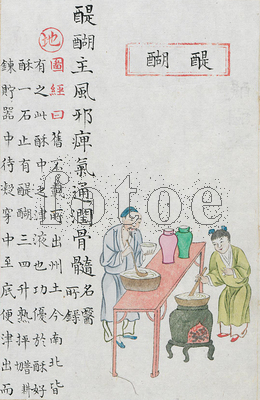 醍醐
醍醐主風邪痺氣通潤骨髓名醫所錄
地
圖經曰舊不載所出州土今南北皆
有之此酥中之津液也功優於酥好
酥一石止有醍醐三四升熟
鍊貯器中待凝穿中至底便津出而
fotoe